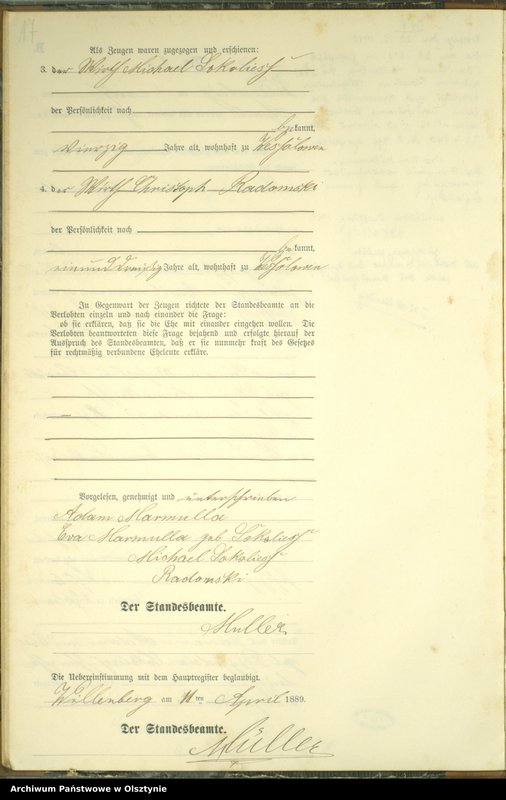 17
Als Zeugen waren zugezogen und erschienen:
3. der Wirth Michael Sokoliess
der Persönlichkeit nach
bekannt,
vierzig Jahre alt, wohnhaft zu
4. der Wirth Christoph Radomski
der Persönlichkeit nach
bekannt,
einunddreißig Jahre alt, wohnhaft zu
In Gegenwart der Zeugen richtete der Standesbeamte an die
Verlobten einzeln und nach einander die Frage:
ob sie erklären, daß sie die Ehe mit einander eingehen wollen. Die
Verlobten beantworteten diese Frage bejahend und erfolgte hierauf der
Ausspruch des Standesbeamten, daß er sie nunmehr kraft des Gesetzes
für rechtmäßig verbundene Eheleute erkläre.
Vorgelesen, genehmigt und unterschrieben
Adam Marmulla
Eva Marmulla geb. Sokoliess
Michael Sokoliess
Radomski
Der Standesbeamte.
Müller
Die Uebereinstimmung mit dem Hauptregister beglaubigt.
Willenberg am 11ten April 1889.
Der Standesbeamte.
Müller
Archiwum Państwowe w Olsztynie